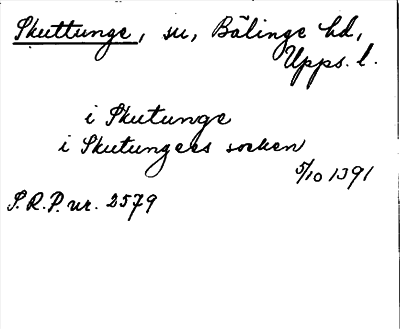 Skuttunge, sn, Bälinge hd,
Upps. l.
i Skutunge
i Skutungess socken
5/10 1391
S.R.P. nr. 2579